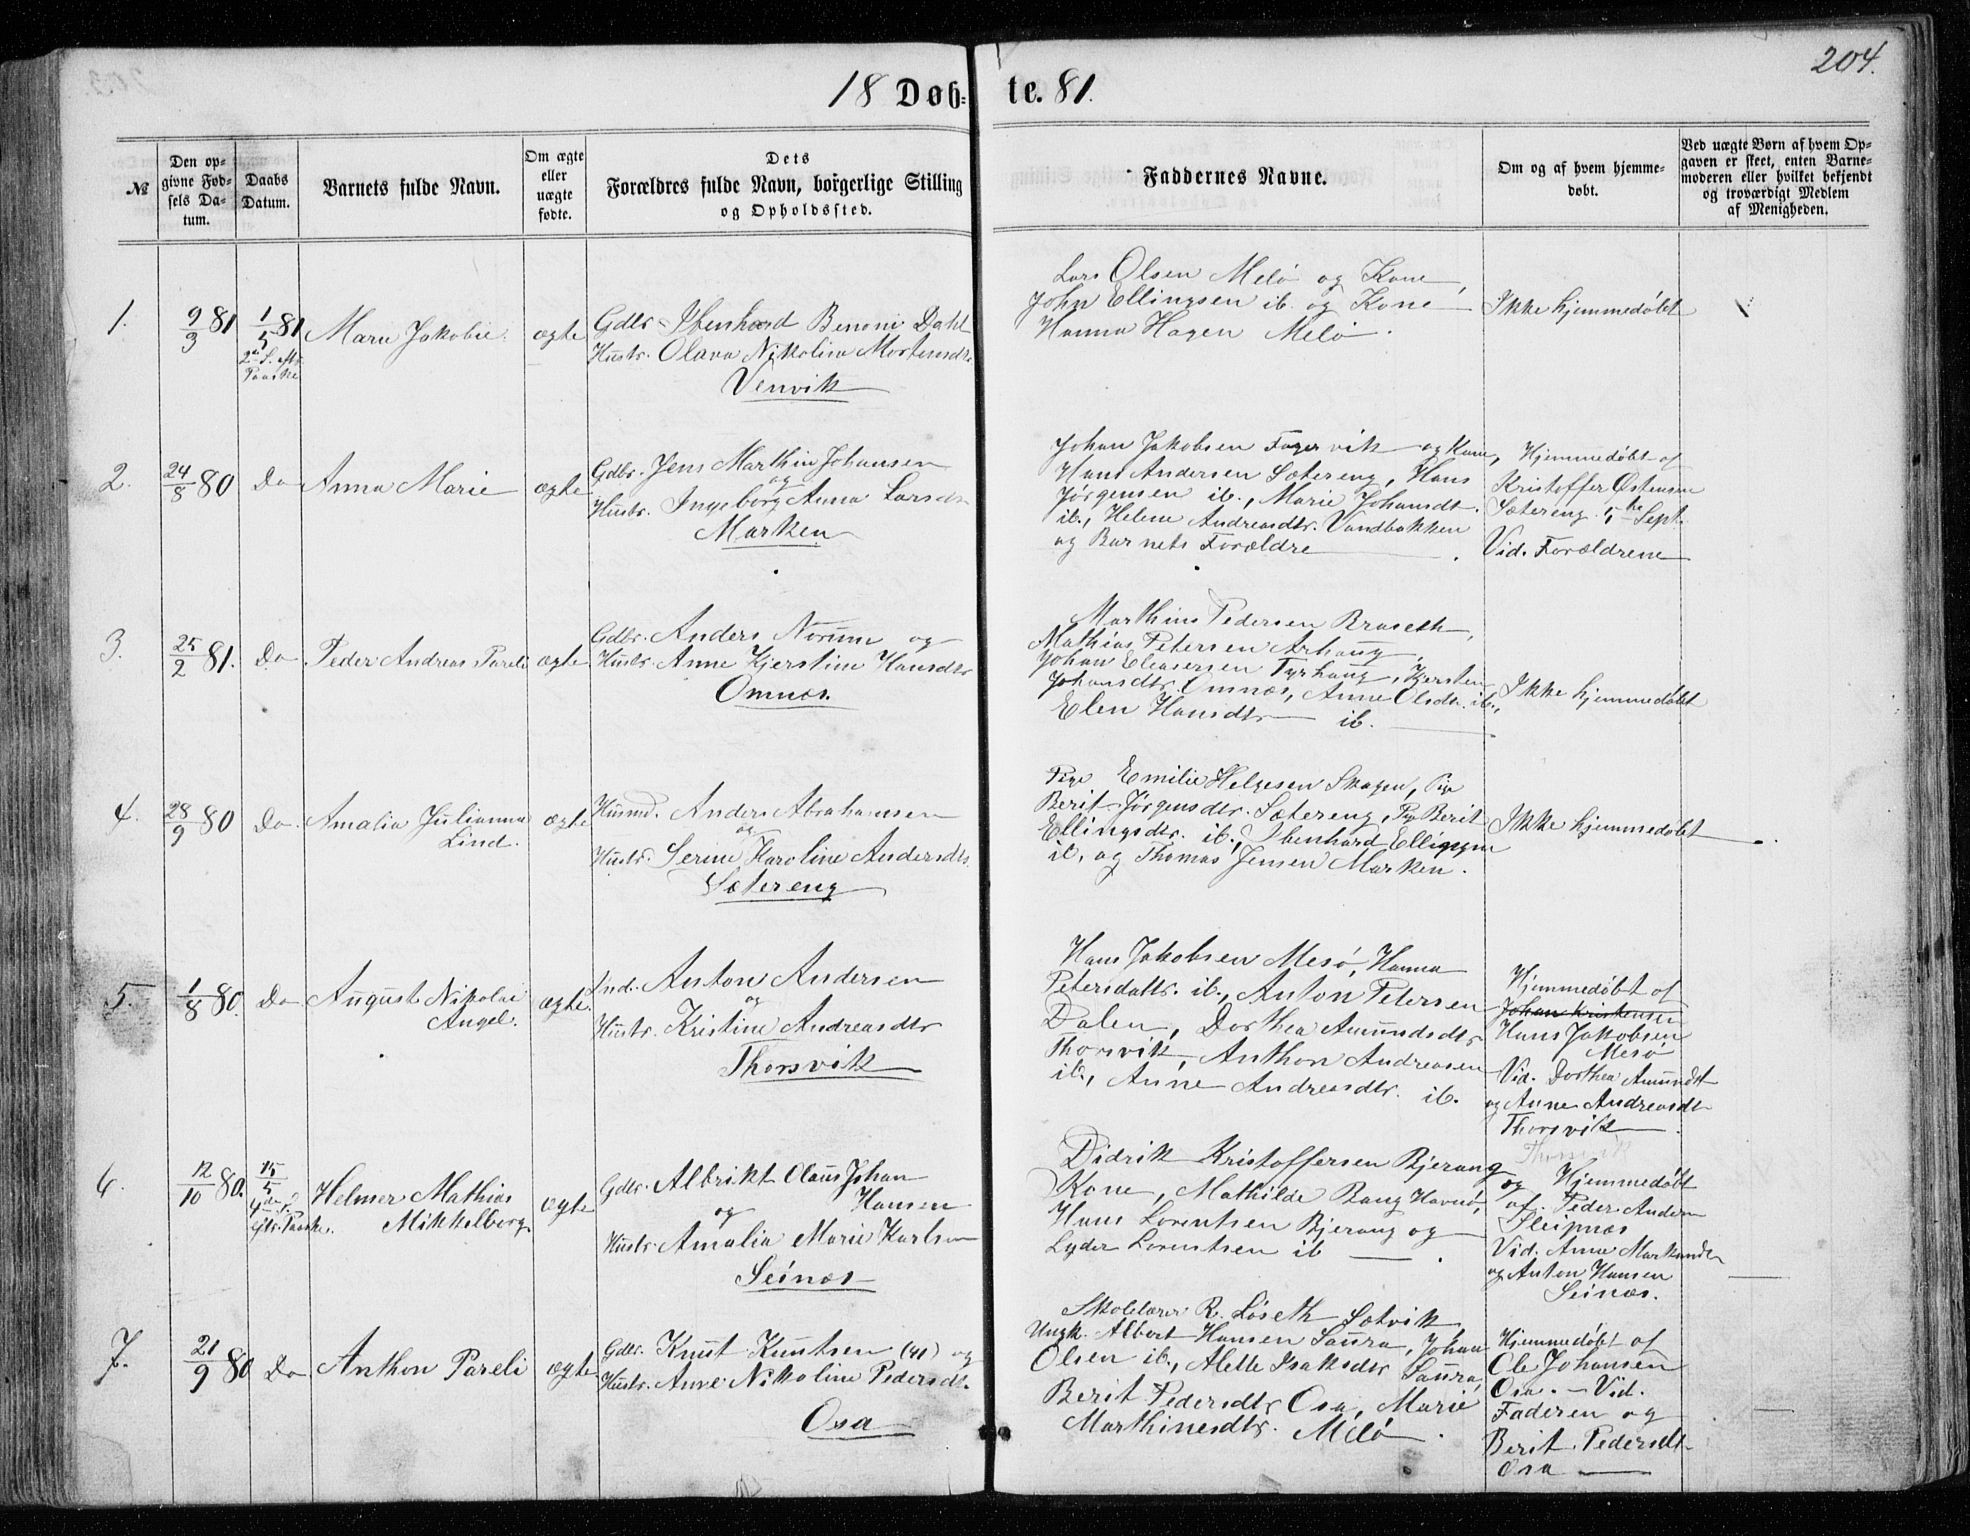 204.
18 Døb= te. 81.
№
Den op=
givne Fød=
sels Da=
tum.
Daabs
Datum.
Barnets fulde Navn.
Om ægte
eller
uægte
fødte.
Dets
Forældres fulde Navn, borgerlige Stilling
og Opholdssted.
Faddernes Navne.
Om og af hvem hjemme=
døbt.
Ved uægte Børn af hvem Op=
gaven er skeet, enten Barne=
moderen eller hvilket bekjendt
og troværdigt Medlem
af Menigheden.
1.
9/3 81
1/5 81
2den S. eft.
Paaske
Maru Jakobie
ægte
Gdbr. Ibenhard Benoni Dahl
Hustr. Olava Nikolina Mortensdtr
Venvik
Lars Olsen Melö og Kone,
John Ellingsen ib. og Kone
Hanna Hagen Melö.
Ikke hjemmedøbt
2.
24/8 80
Do
Anna Marie
ægte
Gdbr. Jens Marthin Johansen
og
Hustr. Ingeborg Anna Larsdtr
Marken
Johan Jakobsen Fagervik og Kone,
Hans Andersen Sætereng, Hans
Jörgensen ib., Marie Johansdt.
ib., Helene Andreasdtr. Vandbakken
og Barnets Forældre
Hjemmedøbt af
Kristoffer Östensen
Sætereng 5te Sept.
Vid. Forældrene
3.
25/2 81.
Do
Peder Andreas Pareli
ægte
Gdbr. Anders Norum og
Hustr. Anne Kjerstine Hansdtr
Omnæs.
Marthin Pedersen Braseth,
Mathias Petersen Arhaug,
Johan Eliasersen Tyrhaug, Kjersten
Johansdtr. Omnæs, Anne Olsdtr. ib.,
Elen Hansdtr ib.
Ikke hjemmedøbt
4.
28/9 80
Do.
Amalia Julianna
Lind.
ægte
Husmd. Anders Abrahamsen
og
Hustr. Serine Karoline Andersdtr.
Sætereng
Pige Emilie Helgesen Skagen, Pige
Berit Jörgensdtr. Sætereng, Pige Berit
Ellingsdtr. ib., Ibenhard Ellingsen
ib. og Thomas Jensen Marken.
Ikke hjemmedøbt
5.
1/8 80.
Do
August Nikolai
Angel.
ægte.
Ind. Anton Andersen
og
Hustr. Kristine Andreasdtr
Thorsvik
Hans Jakobsen Mesö, Hanna
Petersdattr. ib., Anton Petersen
Dalen, Dorthea Amundsdtr
Thorsvik, Anthon Andreasen
ib., Anne Andreasdtr. ib.
Hjemmedøbt af
Johan Kristensen
Hans Jakobsen
Mesö
Vid. Dorthea Amundsdt
og Anne Andreasdt
Thorsvik
6.
12/10 80.
15/5
4de S.
eft. Paaske.
Helmer Mathias
Mikkelborg.
ægte
Gdbr. Albrikt Olaus Johan
Hansen
og
Hustr. Amalia Marie Karlsen
Seinæs
Didrik Kristoffersen Bjerang og
Kone, Mathilde Bang Havnö,
Hans Lorentsen Bjerang og
Lyder Lorentsen ib
Hjemmedøbt
af Peder Andersen
Sleipnæs
Vid. Anne
og Anton Hansen
Seinæs.
7.
21/9 80
Do
Anthon Pareli
ægte
Gdbr. Knut Knutsen (41) og
Hustr. Anne Nikoline Pedersdt.
Osa
Skolelærer R. Löseth Sætvik,
Ungk. Albert Hansen Saura, Johan
Olsen ib., Alette Isaksdtr Saura,
Berit Pedersdtr Osa, Marie
Marthinesdtr. Melö.
Hjemmedøbt af
Ole Johansen
Osa. – Vid.
Faderen og
Berit Pedersdt
Osa